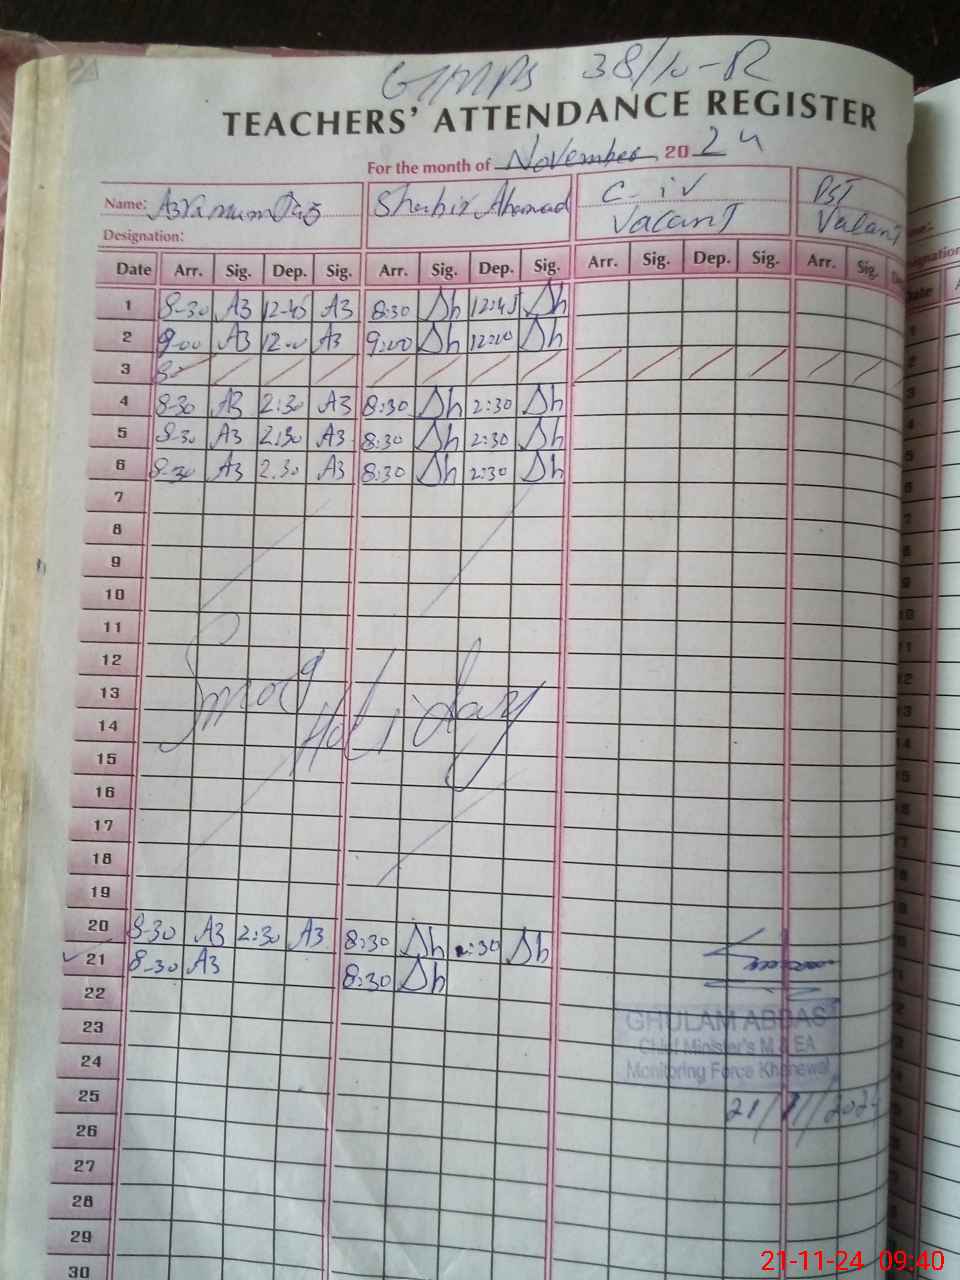 38/10-R
TEACHERS' ATTENDANCE REGISTER
For the month of November 2024
Name: Shabir Ahamad C-iv PST
Designation: Vacant Vacant
Date Arr. Sig. Dep. Sig. Arr. Sig. Dep. Sig. Arr. Sig. Dep. Sig. Arr. Sig.
1 8-30 A3 12-45 A3 8:30 Sh 12:45 Sh
2 9-00 A3 12-00 A3 9:00 Sh 12:00 Sh
3
4 8-30 A3 2:30 A3 8:30 Sh 2:30 Sh
5 8-30 A3 2:30 A3 8:30 Sh 2:30 Sh
6 8-30 A3 2.30 A3 8:30 Sh 2:30 Sh
7
8
9
10
11
12
13 Smog Holiday
14
15
16
17
18
19
20 8-30 A3 2:30 A3 8:30 Sh 2:30 Sh
21 8-30 A3 8:30 Sh
22
23 GHULAM ABBAS
24 Chief Minister's M & EA
Monitoring Force Khanewal
25
26 21/11/2024
27
28
29
30
21-11-24 09:40